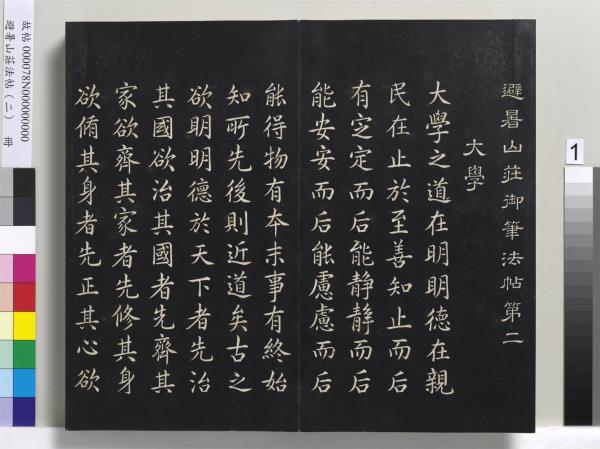 避暑山莊御筆法帖第二
大學
大學之道在明明德在親
民在止於至善知止而后
有定定而后能静静而后
能安安而后能慮慮而后
能得物有本末事有終始
知所先後則近道矣古之
欲明明德於天下者先治
其國欲治其國者先齊其
家欲齊其家者先修其身
欲脩其身者先正其心欲
故帖 000078N000000000
避暑山莊法帖（二） 冊
1